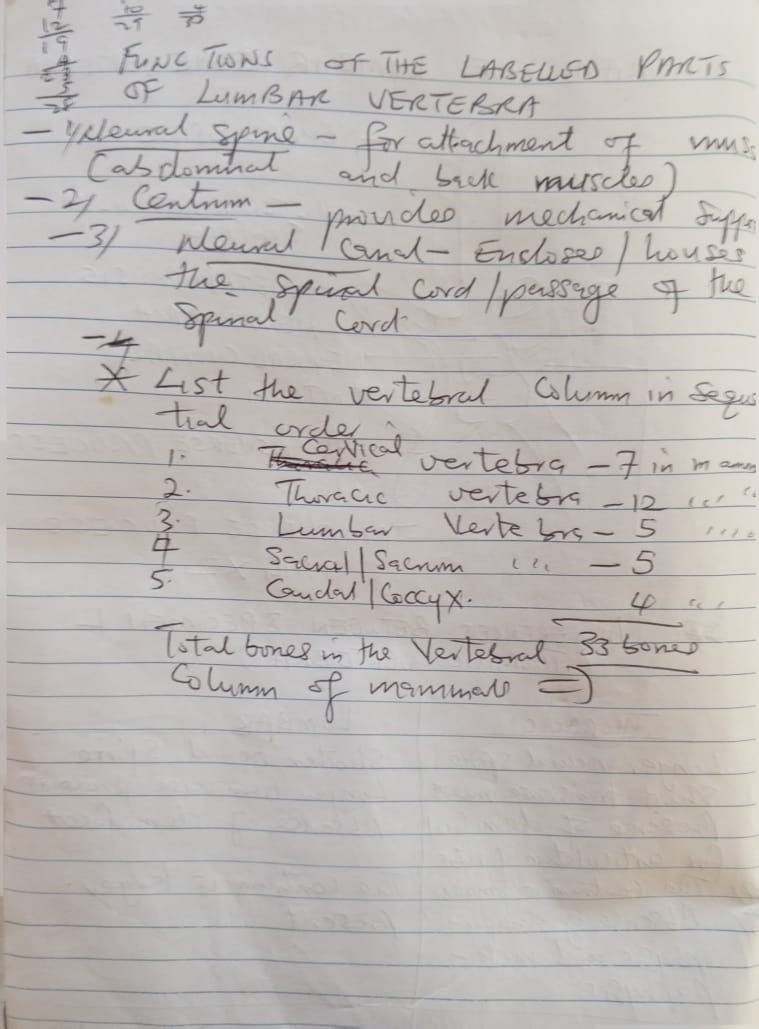 7
12
19
29
10
29
4
33
FUNCTIONS OF THE LABELLED PARTS
OF LUMBAR VERTEBRA
- 1) Neural spine - for attachment of mus
(abdominal and back muscles)
- 2) Centrum - provides mechanical Supp
- 3) Neural Canal - Encloses / houses
the spinal cord / passage of the
Spinal Cord.
- 4
* List the vertebral Column in Seque
tial order.
1. Cervical vertebra - 7 in mamm
2. Thoracic vertebra - 12 " "
3. Lumbar Vertebra - 5 " "
4 Sacral / Sacrum " - 5
5. Caudal / Coccyx. 4 "
Total bones in the Vertebral 33 bones
Column of mammals =>